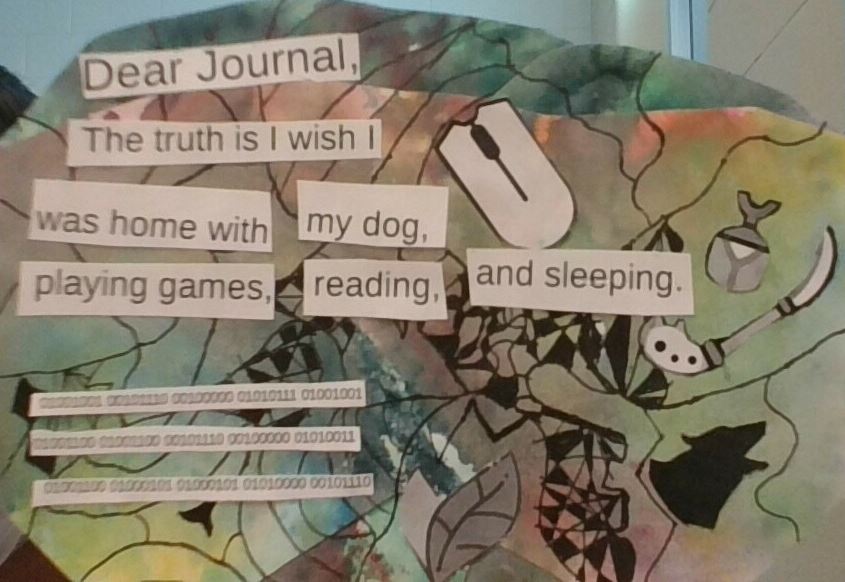 Dear Journal,
The truth is I wish I
was home with my dog,
playing games, reading, and sleeping.
01001001 00101110 00100000 01010111 01001001
01001100 01001100 00101110 00100000 01010011
01001100 01000101 01000101 01010000 00101110